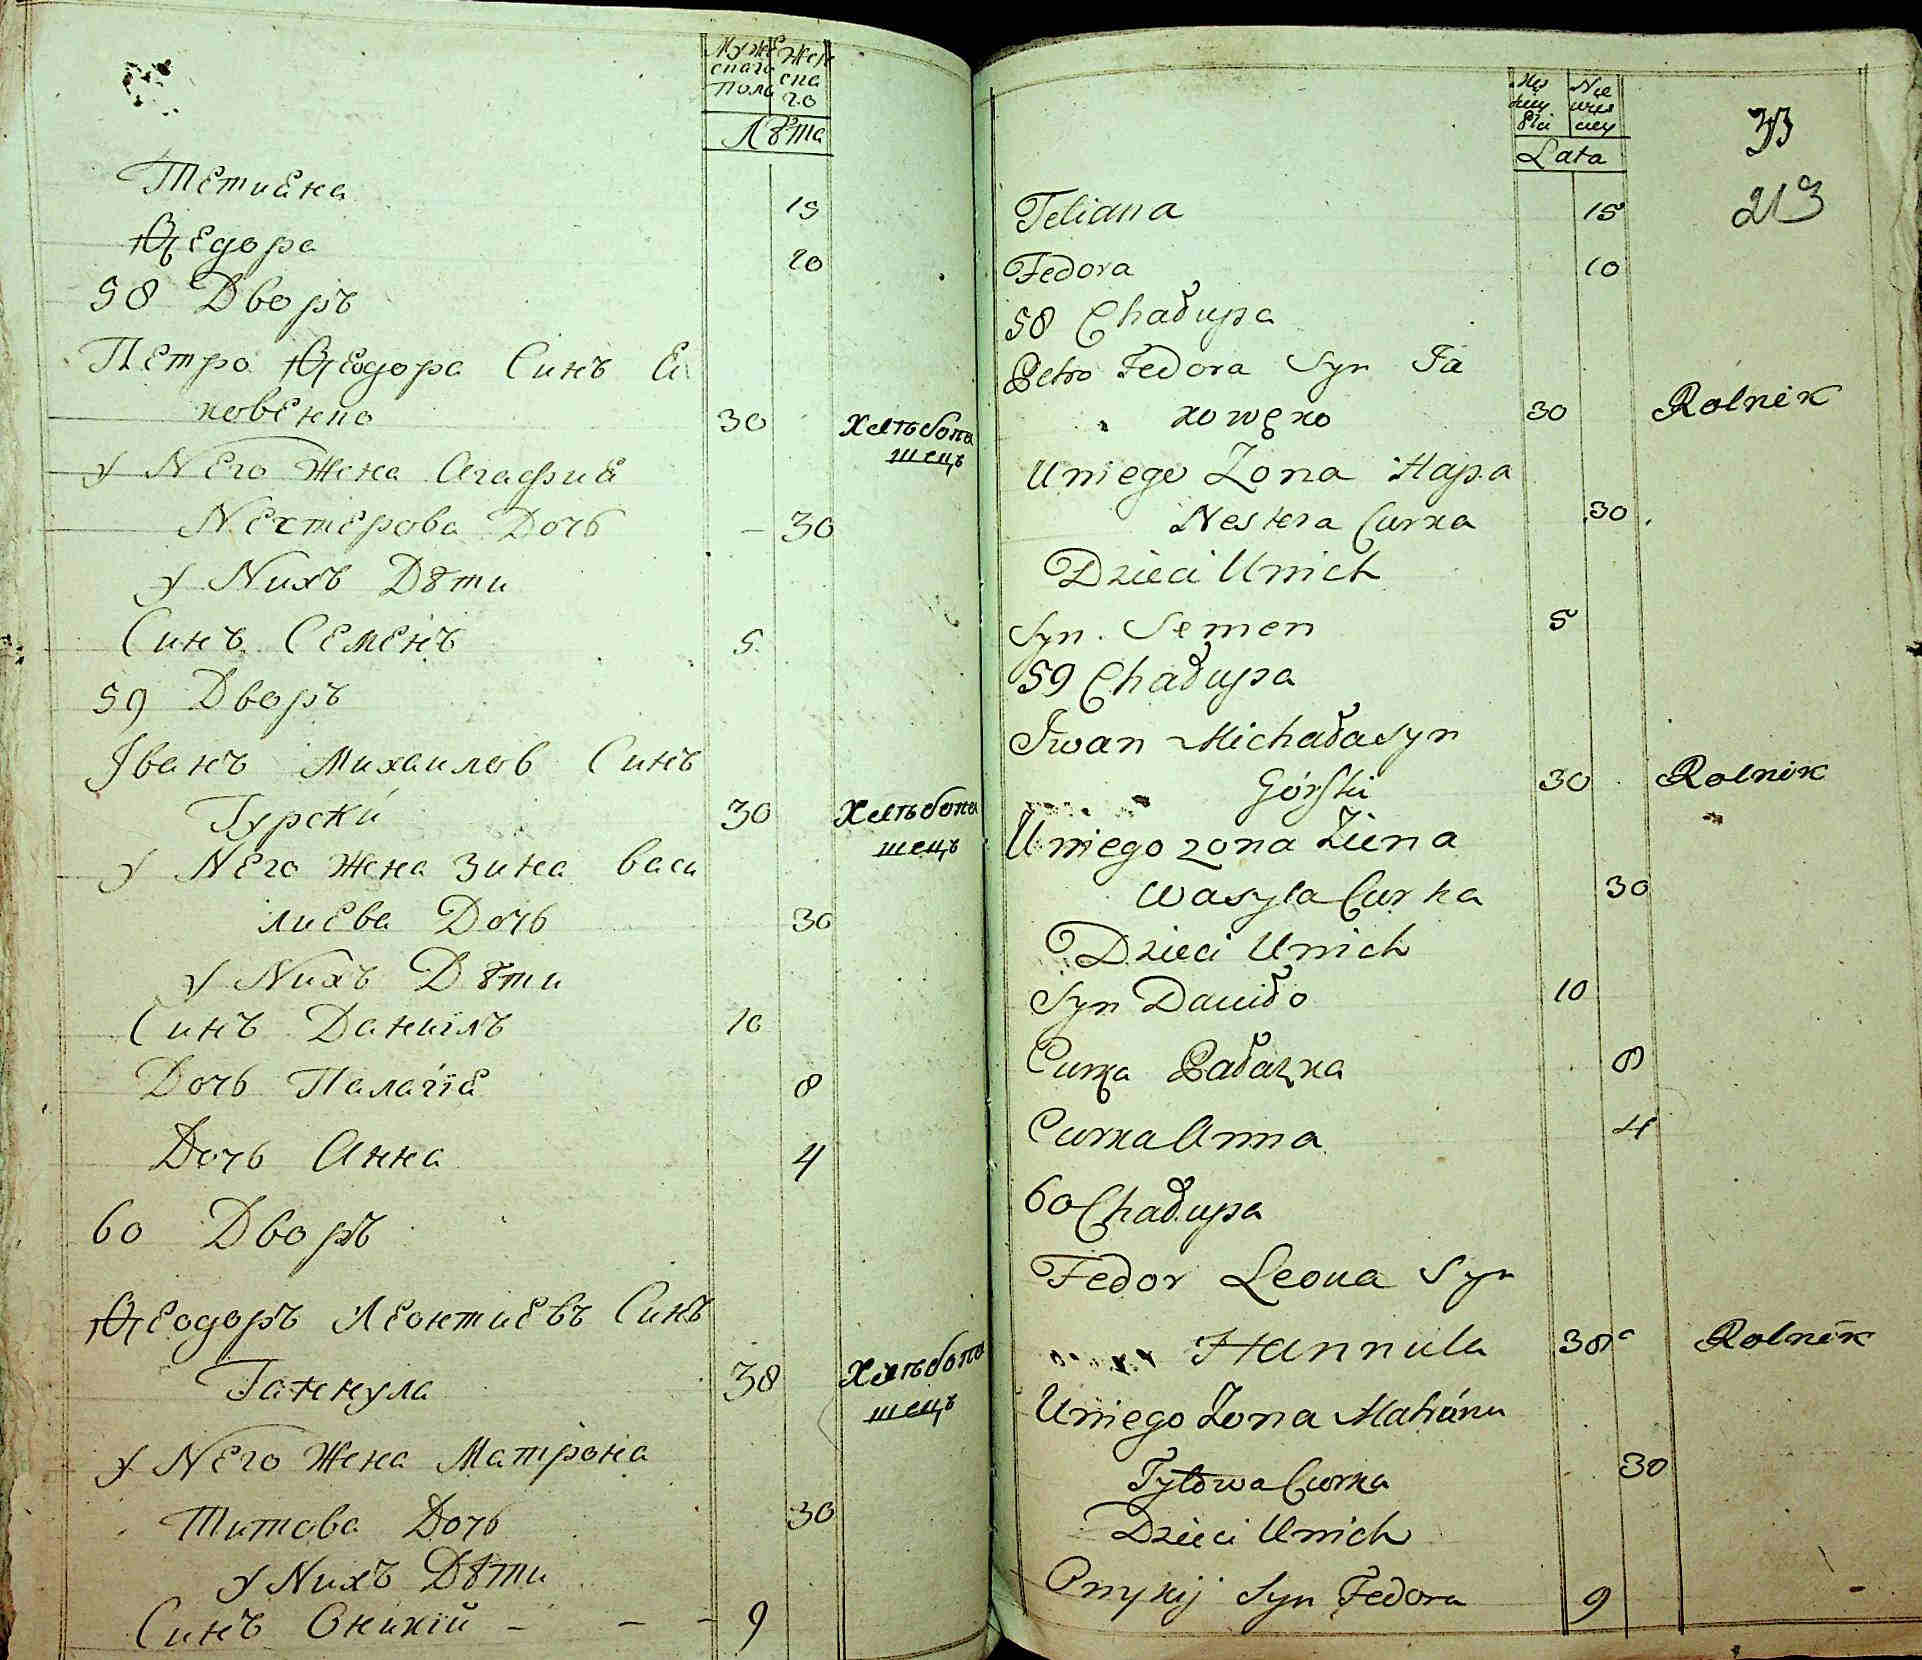 Мужескаго пола
Женскаго
Лѣта
Тетиѧна 15
Ѳедора 10
58 Дворъ
Петро Ѳеодора Синъ Ꙗ
ковенко 30 Хлѣбопа
шецъ
У Него Жена Агафиѧ
Нестерова Дочь - 30
У Нихъ Дѣти
Синъ Семенъ 5
59 Дворъ
Іванъ Михаиловъ Синъ
Гурскй 30 Хлѣбопа
шецъ
У Него Жена Зина Васи
лиева Дочь 30
У Нихъ Дѣти
Синъ Даниїлъ 10
Дочь Палагїѧ 8
Дочь Анна 4
60 Дворъ
Ѳеодоръ Леонтиевъ Синъ
Ганнула 38 Хлѣбопа
шецъ
У Него Жена Матрона
Титова Дочь 30
У Нихъ Дѣти
Синъ Оникїй - - - 9
Lata
213
Teliana 15
Fedora 10
58 Chałupa
Petro Fedora Syn Ja
kowęko 30 Rolnik
Uniego Zona Hapa
Nestera Curka 30
Dzieci Unich
Syn Semen 5
59 Chałupa
Iwan Michała Syn
Górski 30 Rolnik
Uniego zona Zina
Wasyla Curka 30
Dzieci Unich
Syn Daniło 10
Curka Pałażka 8
Curka Anna 4
60 Chałupa
Fedor Leona Syn
Hannula 38 Rolnik
Uniego Zona Matróna
Tytowa Curka 30
Dzieci Unich
Onykij Syn Fedora 9